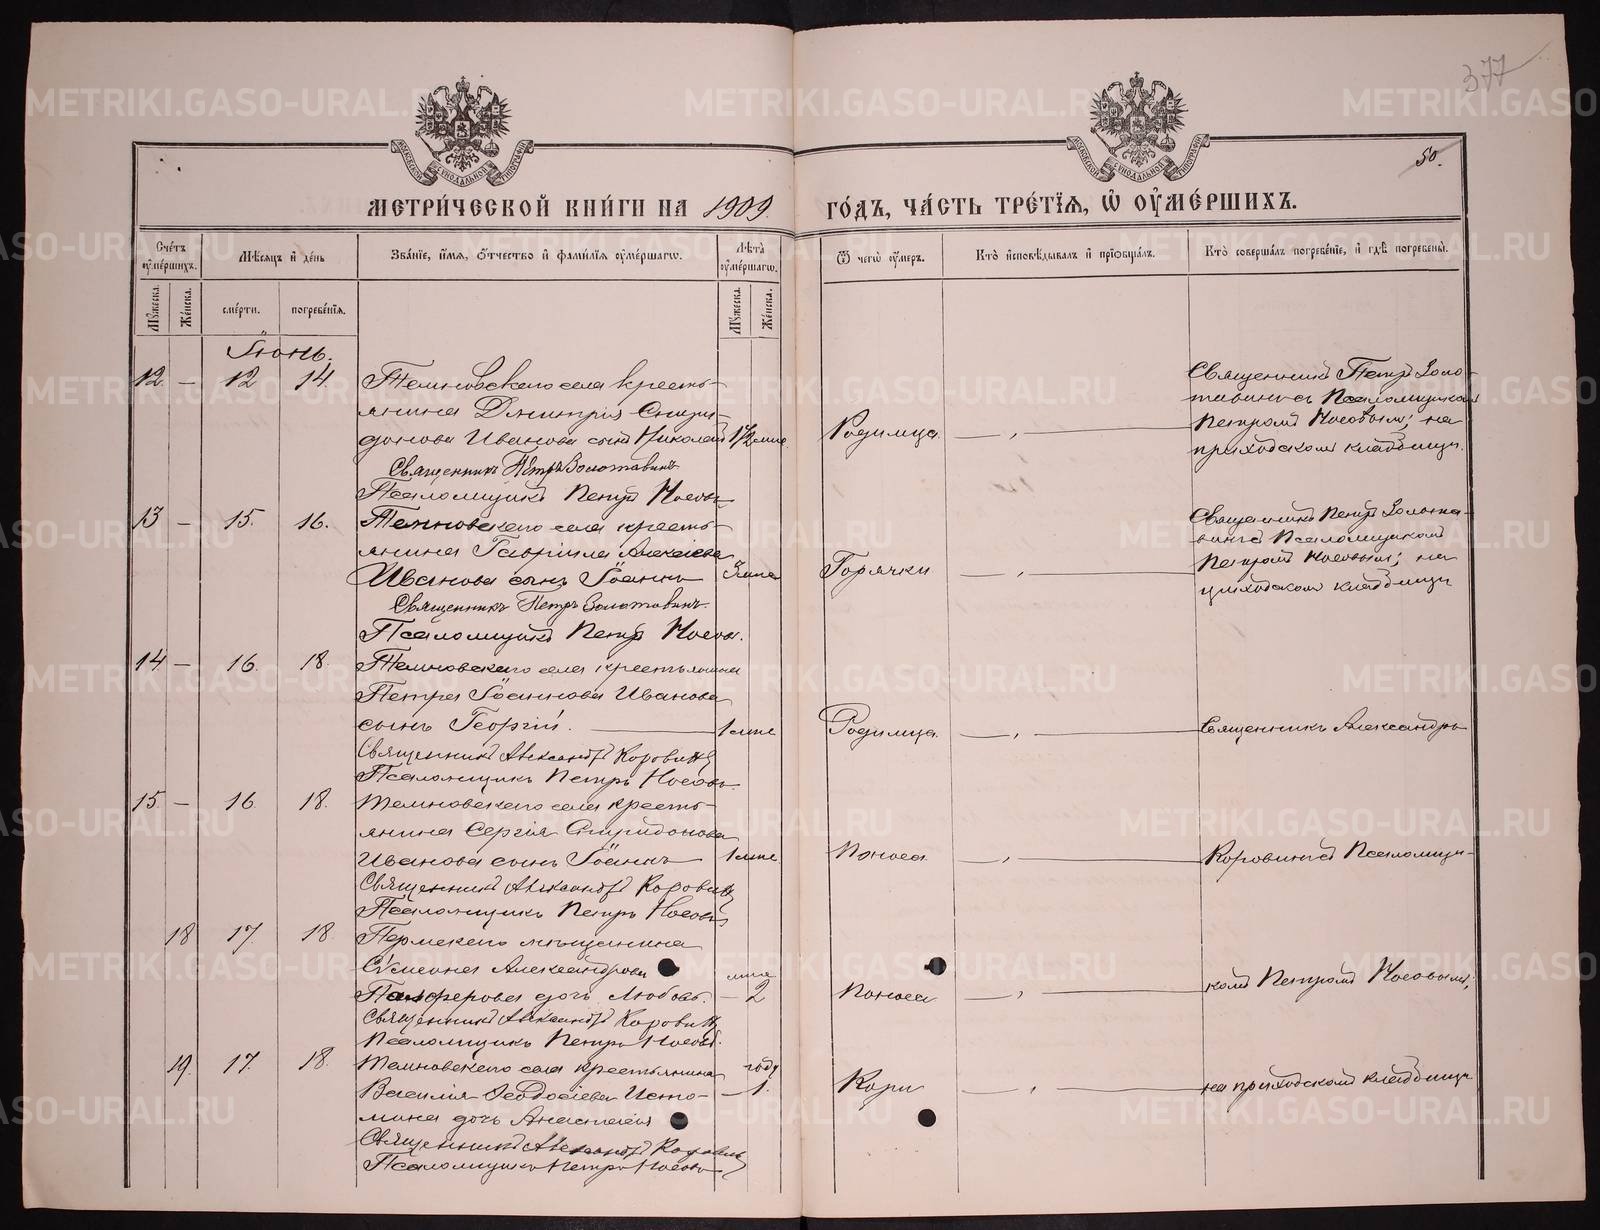 377
50.
МЕТРИ́ЧЕСКОЙ КНИ́ГИ НА 1909 ГО́ДЪ, ЧА́СТЬ ТРЕ́ТІѦ, Ѡ҆ ОУ҆МЕ́РШИХЪ.
Сче́тъ оу҆ме́ршихъ.
Мѣ́сѧцъ и҆ де́нь
Зва́нїе, и҆́мѧ, ѻ҆́тчество и҆ фами́лїѧ оу҆ме́ршагѡ.
Лѣ́та оу҆ме́ршагѡ.
Ѿ чегѡ̀ оу҆́меръ.
Кто̀ и҆сповѣ́дывалъ и҆ прїѡбща́лъ.
Кто̀ соверша́лъ погребе́нїе, и҆ гдѣ̀ погребены̀.
Мꙋ́жеска.
Же́нска.
сме́рти.
погребе́нїѧ.
Мꙋ́жеска.
Же́нска.
Іюнь.
12 — 12 14. Темновскаго села кресть-
янина Димитрія Спири-
донова Иванова сынъ Николай 1½ мце
Священникъ Петръ Золотавинъ
Псаломщикъ Петръ Носовъ
Родимца — „ —
Священникъ Петръ Золо-
тавинъ съ Псаломщикомъ
Петромъ Носовымъ; на
приходскомъ кладбищѣ.
13 — 15. 16. Темновскаго села кресть-
янина Гавріила Алексіева
Иванова сынъ Іоаннъ 3 мца
Священникъ Петръ Золотавинъ.
Псаломщикъ Петръ Носовъ.
Горячки — „ —
Священникъ Петръ Золота-
винъ съ Псаломщикомъ
Петромъ Носовымъ; на
приходскомъ кладбищѣ
14 — 16. 18. Темновскаго села крестьянина
Петра Іоаннова Иванова
сынъ Георгій. — 1 мце
Священникъ Александръ Коровинъ
Псаломщикъ Петръ Носовъ
Родимца — „ —
Священникъ Александръ
15. — 16. 18. Темновскаго села кресть-
янина Сергія Спиридонова
Иванова сынъ Іоаннъ 1 мце
Священникъ Александръ Коровинъ
Псаломщикъ Петръ Носовъ
Поноса — „ —
Коровинъ съ Псаломщи-
18 17. 18. Пермскаго мѣщанина
Сѵмеона Александрова
Панферова дочь Любовь. — мце 2
Священникъ Александръ Коровинъ
Псаломщикъ Петръ Носовъ.
Поноса — „ —
комъ Петромъ Носовымъ;
19. 17. 18. Темновскаго села крестьянина
Василія Ѳеодосіева Исто-
мина дочь Анастасія — году 1.
Священникъ Александръ Коровинъ
Псаломщикъ Петръ Носовъ
Кори — „ —
на приходскомъ кладбищѣ
METRIKI.GASO-URAL.RU